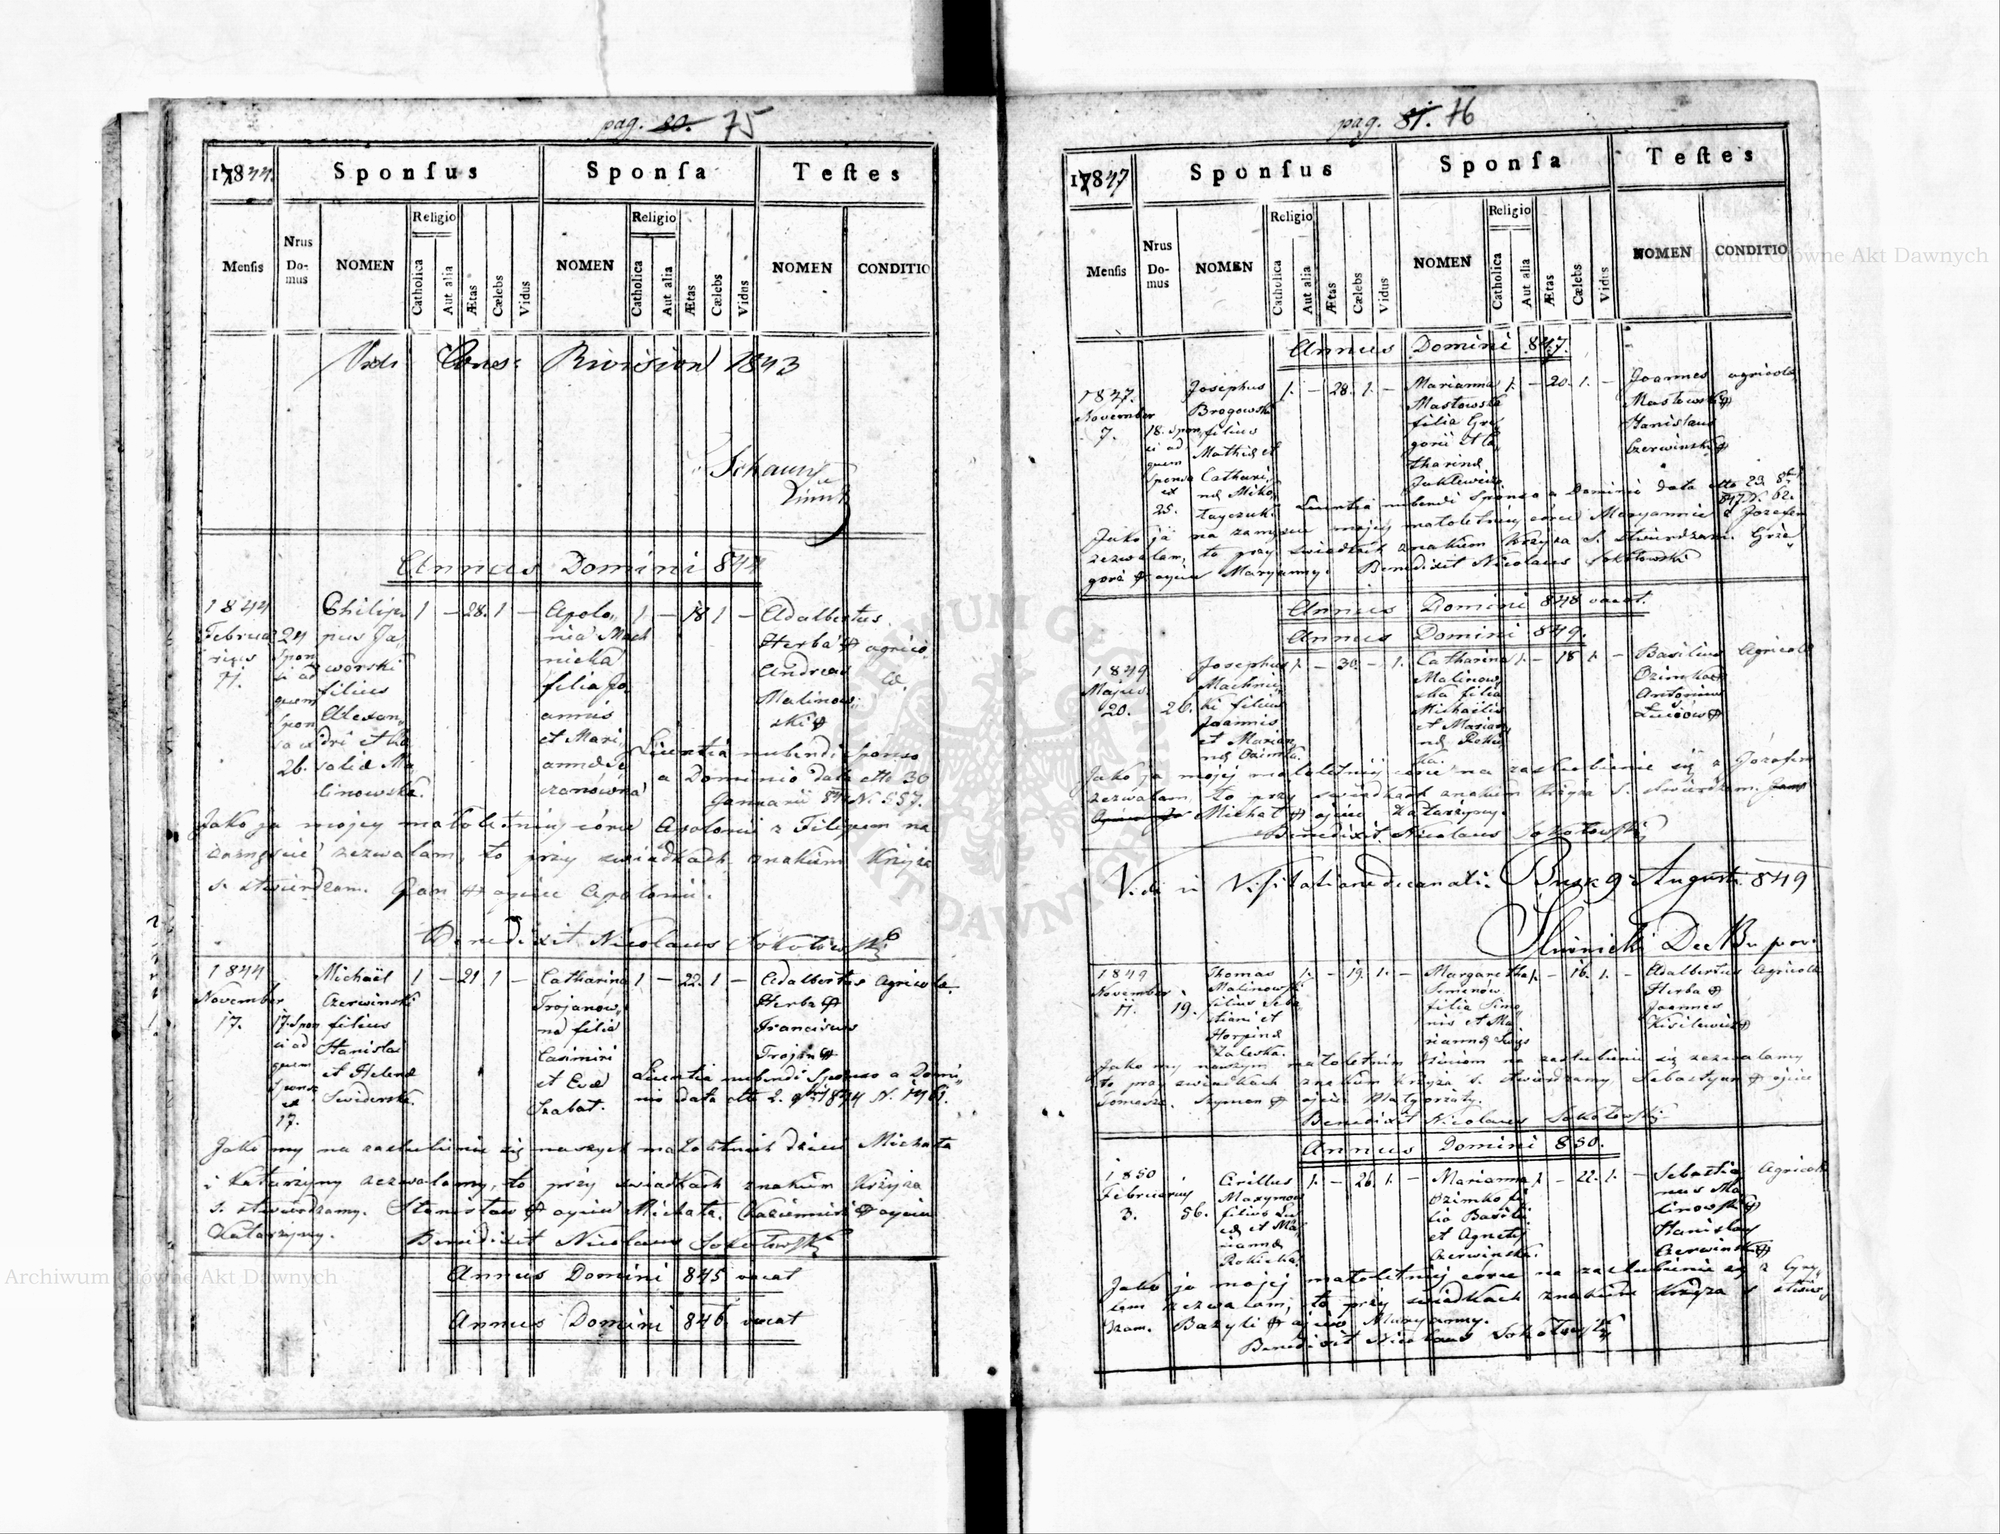 pag. 80. 75
17844.
Sponſus
Sponſa
Teſtes
Menſis
Nrus Do-mus
NOMEN
Religio
Catholica
Aut alia
Ætas
Cælebs
Vidus
NOMEN
Religio
Catholica
Aut alia
Ætas
Cælebs
Vidus
NOMEN
CONDITIO
Vidi Revision 1843
Annus Domini 844
1844
Februa
rius
11.
24
Spon
si ad
quem
Spon
sa ex
26.
Philip
pus Ja
worski
filius
Alexan
dri et Ro
salie Ma
linowska.
1 – 28. 1 –
Apolo
nia Mach
nicka
filia Jo
annis
et Mari
annæ
1. – 18 1 –
Adalbertus
Herba ‡ agrico
Andreas læ.
Malinow
ski ‡
Licentia nubendi Sponso
a Dominio data dtto 30
Januarii 844 N. 557.
Jako ja mojey małoletniey córce Apolonii z Filipem na
zezwalam, to przy swiadkach znakiem Krzyża
s. stwierdzam. Jan ‡ oyciec Apolonii.
Benedixit Nicolaus Sokołowski
1844
November
17.
17. Spon
si ad
quem
Sponsa
et
17.
Michaël
Czerwinski
filius
Stanislai
et Helenæ
Swiderska.
1 – 21 1 –
Catharina
Trojanow
na filia
Casimiri
et Evæ
Szabat.
1 – 22. 1 –
Adalbertus Agricola.
Herba ‡
Franciscus
Trojan ‡
Licentia nubendi Sponso a Domi
nio data dtto 2. 9bris 1844 N. 1961.
Jako my na zaslubienie się naszych małoletnich dzieci Michała
i Katarzyny zezwalamy, to przy swiadkach znakiem Krzyża
s. stwierdzamy. Stanisław ‡ oyciec Michała. Kazimierz ‡ oyciec
Katarzyny. Benedixit Nicolaus Sokołowski
Annus Domini 845 vacat
Annus Domini 846 vacat
pag. 81. 76
17847
Sponſus
Sponſa
Teſtes
Menſis
Nrus Do-mus
NOMEN
Religio
Catholica
Aut alia
Ætas
Cælebs
Vidus
NOMEN
Religio
Catholica
Aut alia
Ætas
Cælebs
Vidus
NOMEN
CONDITIO
Annus Domini 847.
1847.
November
7.
18. Spon
si ad
quem
Sponsa
ex
25.
Josephus
Brogowski
filius
Mathiæ et
Cathari
næ Miko
łayczuk
1. – 28. 1. –
Marianna
Masłowska
filia Gre
gorii et Ca
tharinæ
1. – 20. 1. –
Joannes agricola
Masłowski ‡
Stanislaus
Czerwinski ‡
Licentia nubendi Sponso a Dominio data dtto 23. 8br
847 N. 62.
Jako ja na zamęscie mojey małoletniey córce Maryannie z Jozefem
zezwalam, to przy swiadkach znakiem Krzyża s. stwierdzam. Grze
gorz ‡ oyciec Maryanny. Benedixit Nicolaus Sokołowski
Annus Domini 848 vacat.
Annus Domini 849.
1849
Majus
20.
26.
Josephus
Machnic
ki filius
Joannis
et Marian
næ Ozimka
1. – 30. – 1.
Catharina
Malinow
ska filia
Michaëlis
et Marian
næ
1. – 18 1. –
Basilius Agricola
Ozimko ‡
Antonius
Jako ja mojej małoletniej córce na zaslubienie się z Józefem
zezwalam, to przy swiadkach znakiem Krzyża s. stwierdzam.
Michał ‡ ojciec Katarzyny.
Benedixit Nicolaus Sokołowski
Vidi in Visitatione decanali. Busk 9 Augusti 849
1849
November
11.
19.
Thomas
Malinowski
filius Seba
stiani et
Horpinæ
Zaleska.
1. – 19. 1. –
Margaretha
Simenów
filia Simo
nis et Ma
riannæ
1. – 16. 1. –
Adalbertus Agricola
Herba ‡
Joannes
Kisilewicz ‡
Jako my naszym małoletnim dzieciom na zaslubienie się zezwalamy
to przy swiadkach znakiem krzyża s. stwierdzamy, Sebastyan ‡ ojciec
Tomasza. Szymon ‡ ojciec Małgorzaty.
Benedixit Nicolaus Sokołowski
Annus Domini 850.
1850
Februarius
3.
56.
Cirillus
Maxymow
filius Lu
cæ et Ma
riannæ
Rokicka.
1. – 26. 1. –
Marianna
Ozimko fi
lia Basilii
et Agnetis
Czerwińska.
1 – 22. 1. –
Sebastia Agricola
nus Ma
linowski ‡
Stanislaus
Czerwinski ‡
Jako ja mojej małoletniej córce na zaslubienie się z Cyry
lem zezwalam, to przy swiadkach znakiem krzyża s stwier
dzam. Bazyli ‡ ojciec Maryanny.
Benedixit Nicolaus Sokołowski
Archiwum Główne Akt Dawnych
Archiwum Główne Akt Dawnych